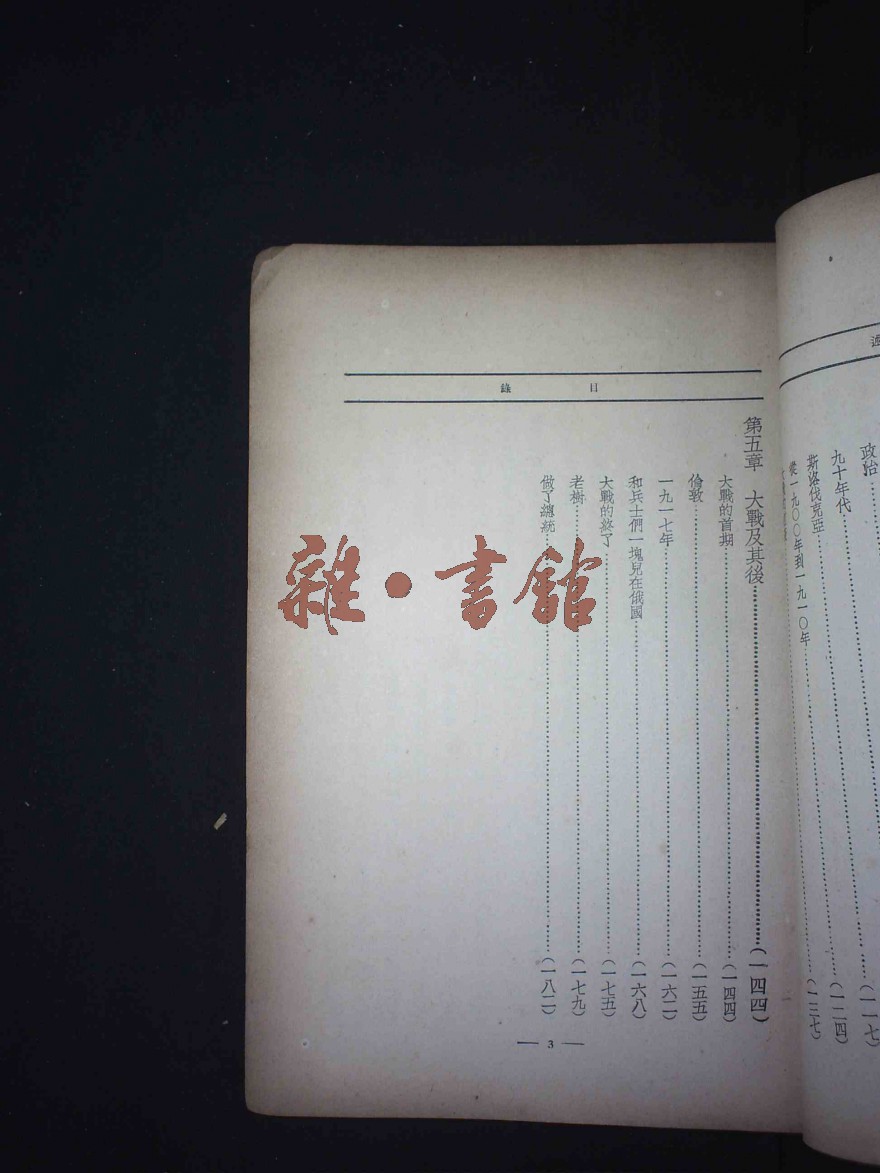 政治……(一一七)
九十年代……(一二四)
斯洛伐克亞……(一三七)
從一九〇〇年到一九一〇年……
目錄
第五章　大戰及其後……(一四四)
大戰的首期……(一四四)
倫敦……(一五五)
一九一七年……(一六二)
和兵士們一塊兒在俄國……(一六八)
大戰的終了……(一七五)
老樹……(一七九)
做了總統……(一八二)
— 3 —
雜•書館